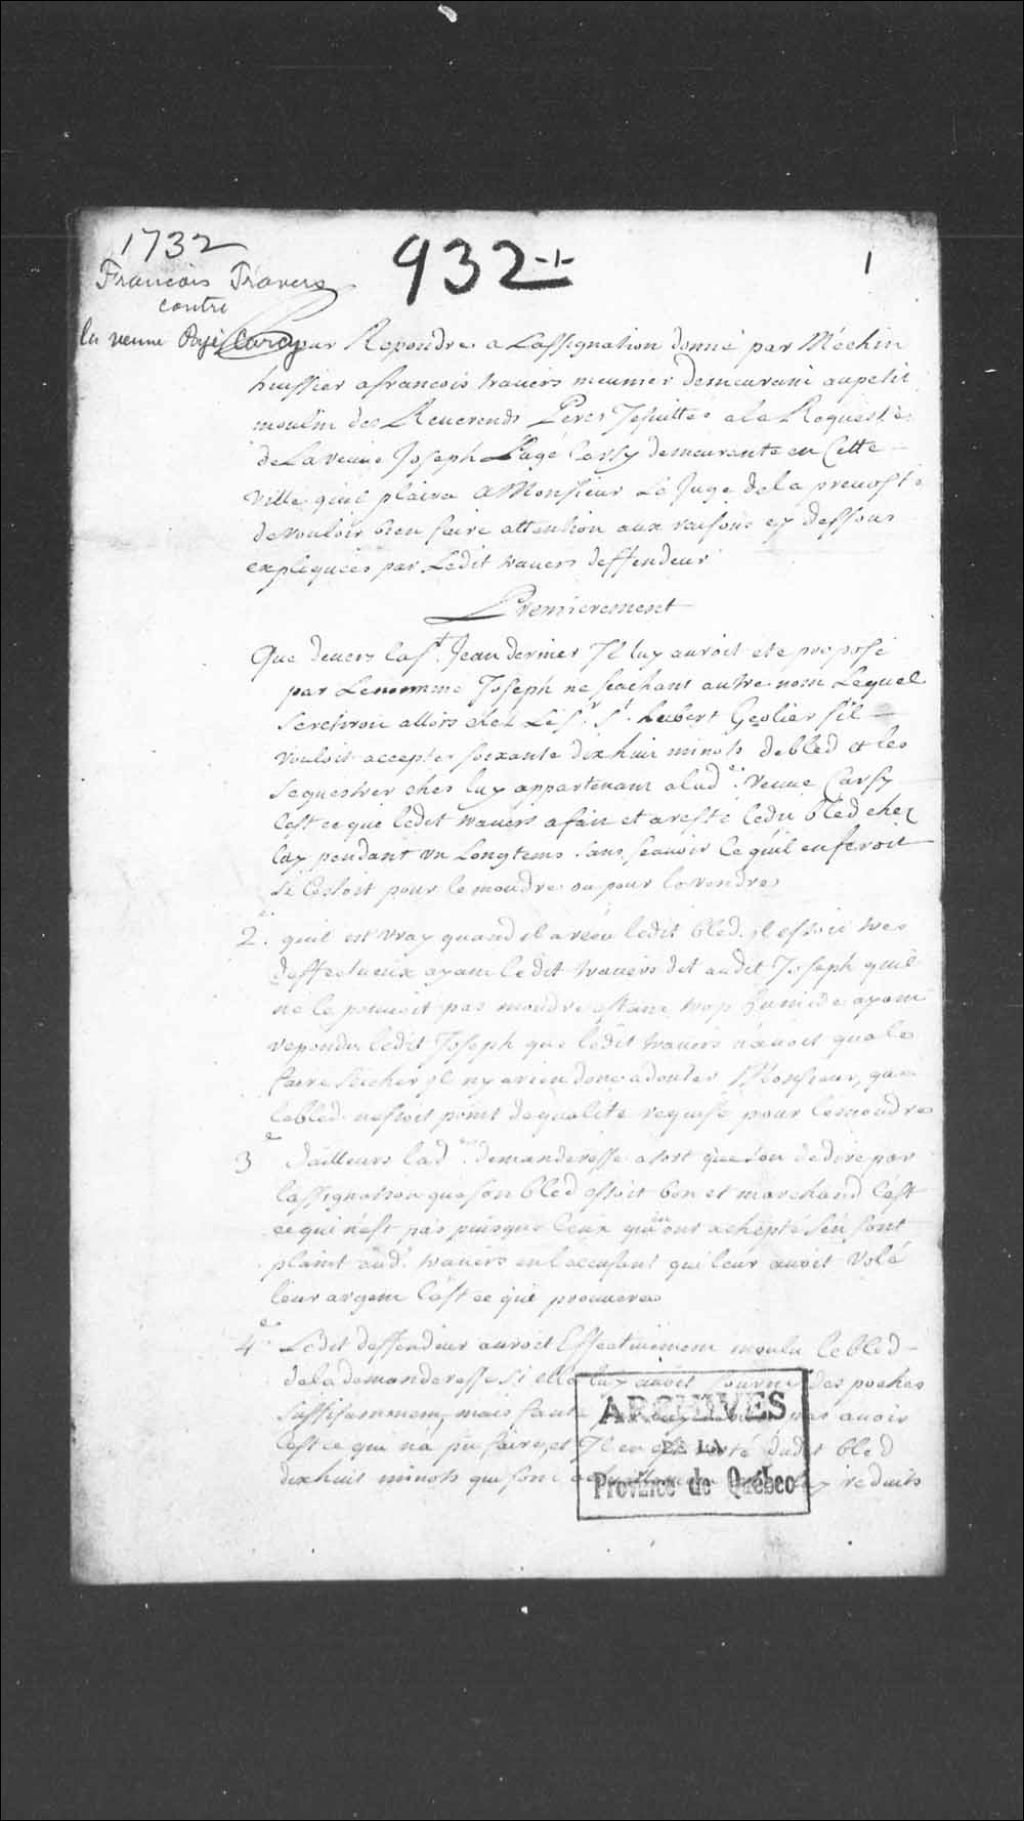 1732
932-1-
1
François Travers
contre
la veuve Pagé Carcy
Pour Repondre a Lassignation donné par Méchin
huissier a francois travers meunier demeurant au petit
moulin des Reuerends Peres Jesuittes a la Requeste
de La veuue Joseph Pagé Carsy demeurante en Cette
Ville quil plaira A Monsieur Le Juge de la preuosté
de vouloir bien faire attention aux raisons cy dessous
expliquées par Ledit trauers deffendeur
Premierement
Que deuers la St. Jean dernier Il luy auroit eté proposé
par Le nommé Joseph ne scachant autre nom Lequel
se retiroit allors chez Le Sr. St. hubert Geolier sil
vouloit accepter soixante dix huit minots de bled et les
sequestrer chez luy appartenant a lade. veuue Carsy
Cest ce que ledit trauers a fait et a resté ledit bled chez
luy pendant un Longtems sans scauoir Ce quil en feroit
si Cestoit pour le moudre ou pour le vendre
2e. quil est vray quand il a receu ledit bled il estoit tres
deffectueux ayant ledit trauers dit audit Joseph quil
ne le pouuoit pas moudre estant trop humide ayant
repondu ledit Joseph que ledit trauers n'auoit qua le
faire secher il ny a rien donc a douter Monsieur, que
le bled nestoit point de qualité requise pour le moudre
3e Dailleurs lad. demanderesse a tort de dire par
lassignation que son bled estoit bon et marchand Cest
ce qui n'est pas puisque Ceux qui en ont achepté sen sont
plaint aud. trauers en laccusant qui leur auoit volé
leur argent Cest ce qui prouuera
4e Ledit deffendeur auroit Effectiuement moulu le bled
de la demanderesse si elle luy auoit fourni des poches
suffisamment, mais faute pas auoir
Cest ce qui na pu faire, et Il en dudit bled
dix huit minots qui sont reduits
ARCHIVES
DE LA
Province de Québec